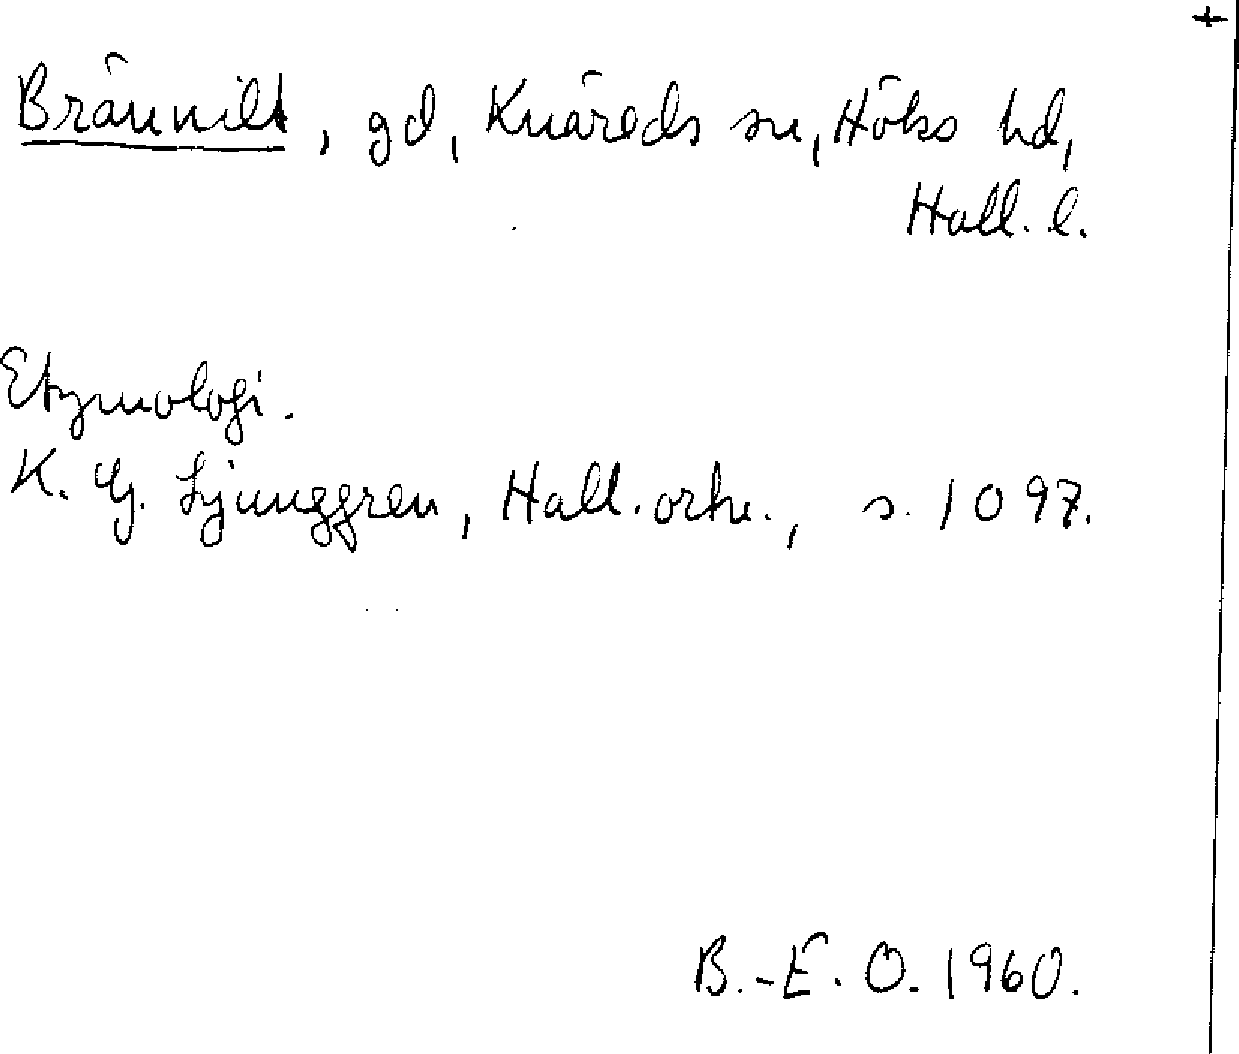 +
Brännilt, gd, Knäreds sn, Höks hd,
Hall. l.
Etymologi.
K. G. Ljunggren, Hall. ortn., s. 1097.
B.-E. O. 1960.